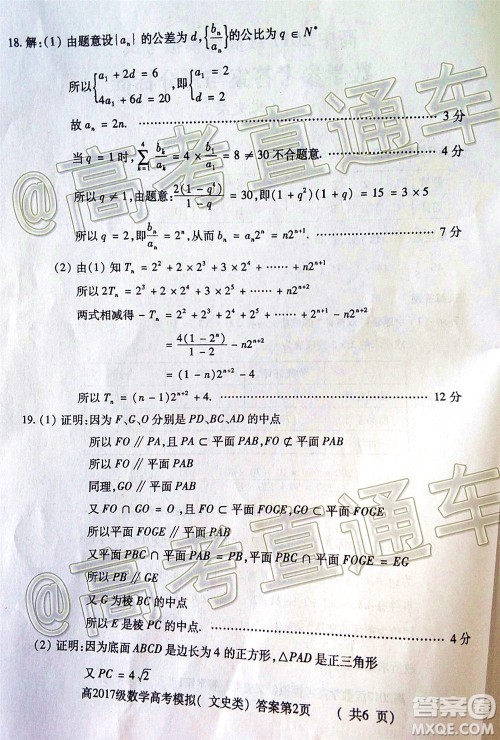 18. 解:(1) 由题意设{aₙ} 的公差为 d,{bₙ/aₙ}的公比为 q ∈ N*
所以{a₁ + 2d = 6, 4a₁ + 6d = 20,即{a₁ = 2, d = 2
故 aₙ = 2n. ………… 3 分
当 q = 1 时, ∑(k=1→4) bₖ/aₖ = 4 × b₁/a₁ = 8 ≠ 30 不合题意. ………… 4 分
所以 q ≠ 1, 由题意: 2(1 − q⁴)/(1 − q) = 30,即(1 + q²)(1 + q) = 15 = 3 × 5
所以 q = 2,即bₙ/aₙ = 2ⁿ, 从而 bₙ = aₙ2ⁿ = n2ⁿ⁺¹ ………… 7 分
(2) 由(1) 知 Tₙ = 2² + 2 × 2³ + 3 × 2⁴ + ⋯⋯ + n2ⁿ⁺¹
所以 2Tₙ = 2³ + 2 × 2⁴ + 3 × 2⁵ + ⋯⋯ + n2ⁿ⁺²
两式相减得 − Tₙ = 2² + 2³ + 2⁴ + ⋯⋯ − n2ⁿ⁺²
= 4(1 − 2ⁿ)/(1 − 2) − n2ⁿ⁺²
= (1 − n)2ⁿ⁺² − 4
所以 Tₙ = (n − 1)2ⁿ⁺² + 4. ………… 12 分
19. (1) 证明:因为 F、G、O 分别是 PD、BC、AD 的中点
所以 FO ∥ PA,且 PA ⊂ 平面 PAB, FO ⊄ 平面 PAB
所以 FO ∥ 平面 PAB
同理, GO ∥ 平面 PAB
又 FO ∩ GO = O,且 FO ⊂ 平面 FOGE, GO ⊂ 平面 FOGE
所以平面 FOGE ∥ 平面 PAB
又平面 PBC ∩ 平面 PAB = PB, 平面 PBC ∩ 平面 FOGE = EG
所以 PB ∥ GE
又 G 为棱 BC 的中点
所以 E 是棱 PC 的中点 ………… 4 分
(2) 证明:因为底面 ABCD 是边长为 4 的正方形, △PAD 是正三角形
又 PC = 4√2
高2017级数学高考模拟( 文史类) 答案第2页 ( 共6 页)
@高考直通车
@高考直通车